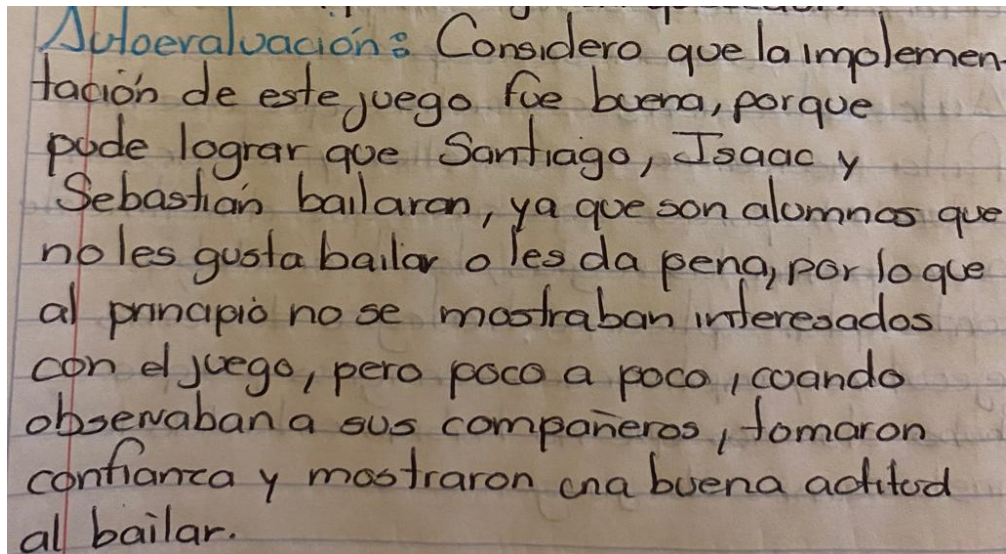 Autoevaluación: Considero que la implemen-
tación de este juego fue buena, porque
pude lograr que Santiago, Isaac y
Sebastián bailaran, ya que son alumnos que
no les gusta bailar o les da pena, por lo que
al principio no se mostraban interesados
con el juego, pero poco a poco, cuando
observaban a sus compañeros, tomaron
confianza y mostraron una buena actitud
al bailar.